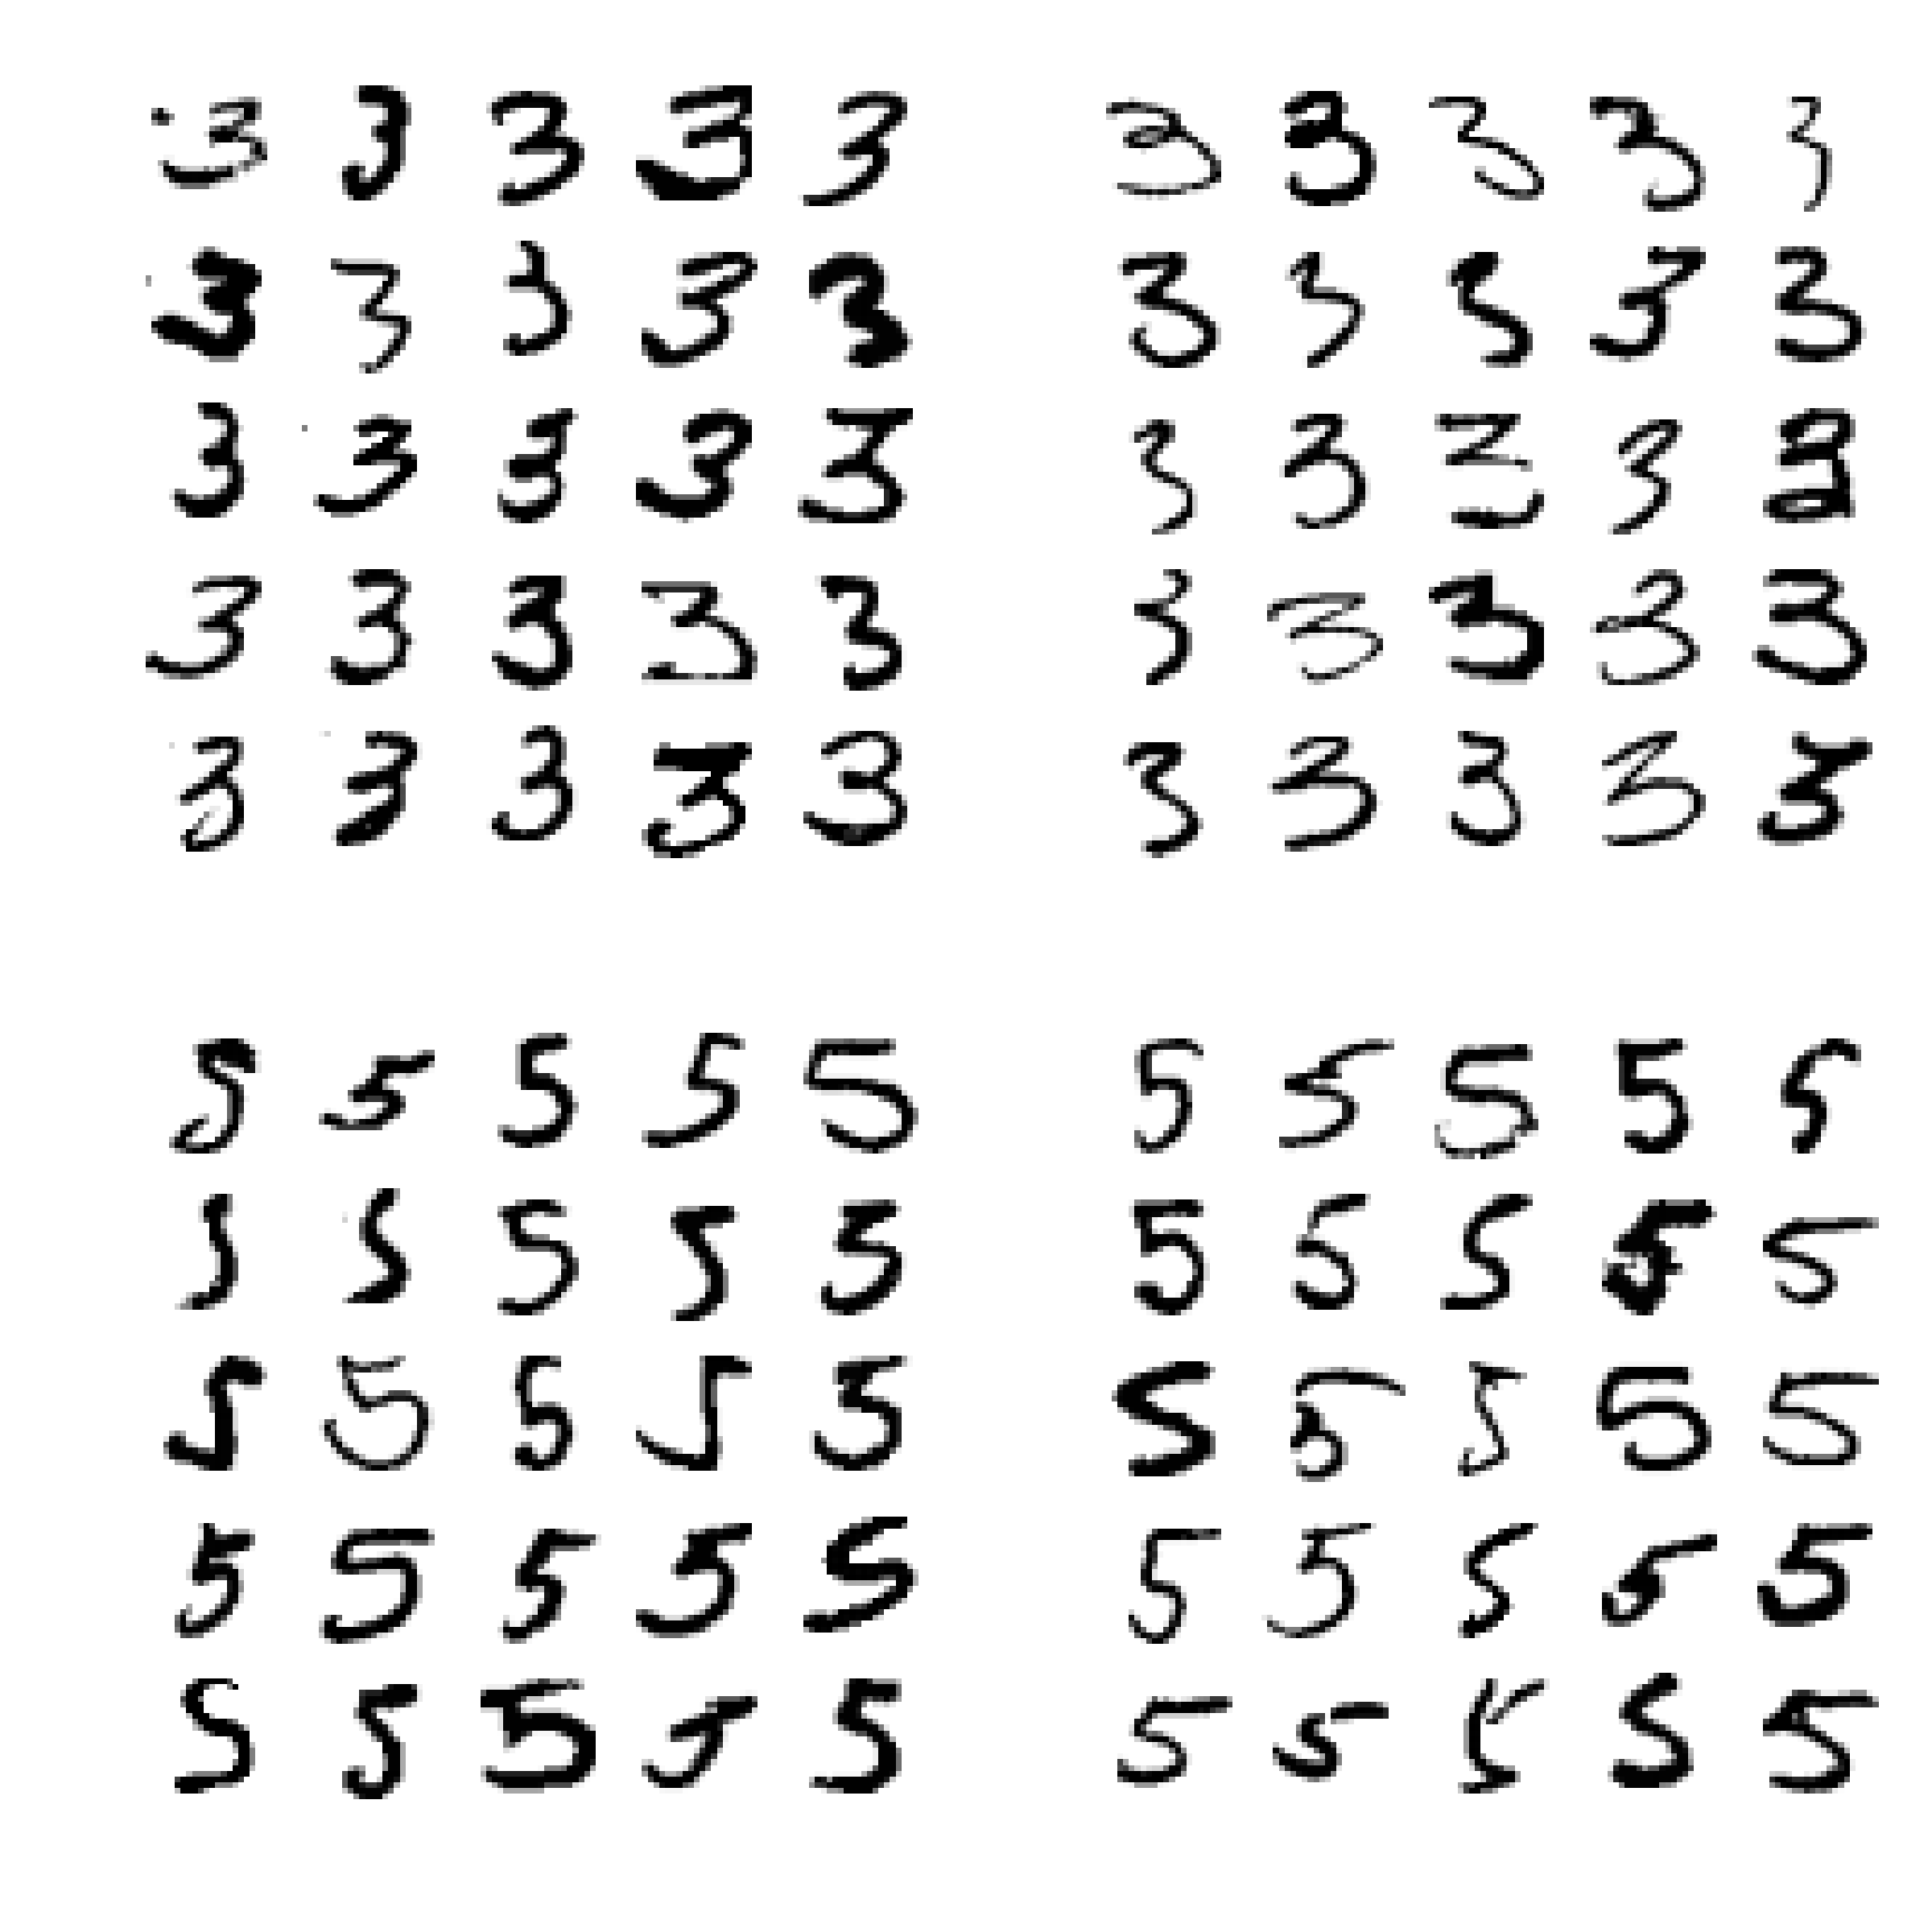 3 3 3 3 3 3 3 3 3 3
3 3 3 3 3 3 5 5 3 3
3 3 3 3 3 3 3 3 3
3 3 3 3 3 3 3 3 3 3
3 3 3 3 3 3 3 3 3 3
5 5 5 5 5 5 5 5 5 5
5 5 5 5 5 5 5 5 5 5
5 5 5 5 5 5 5 5 5 5
5 5 5 5 5 5 5 5 5 5
5 5 5 5 5 5 5 5 5 5